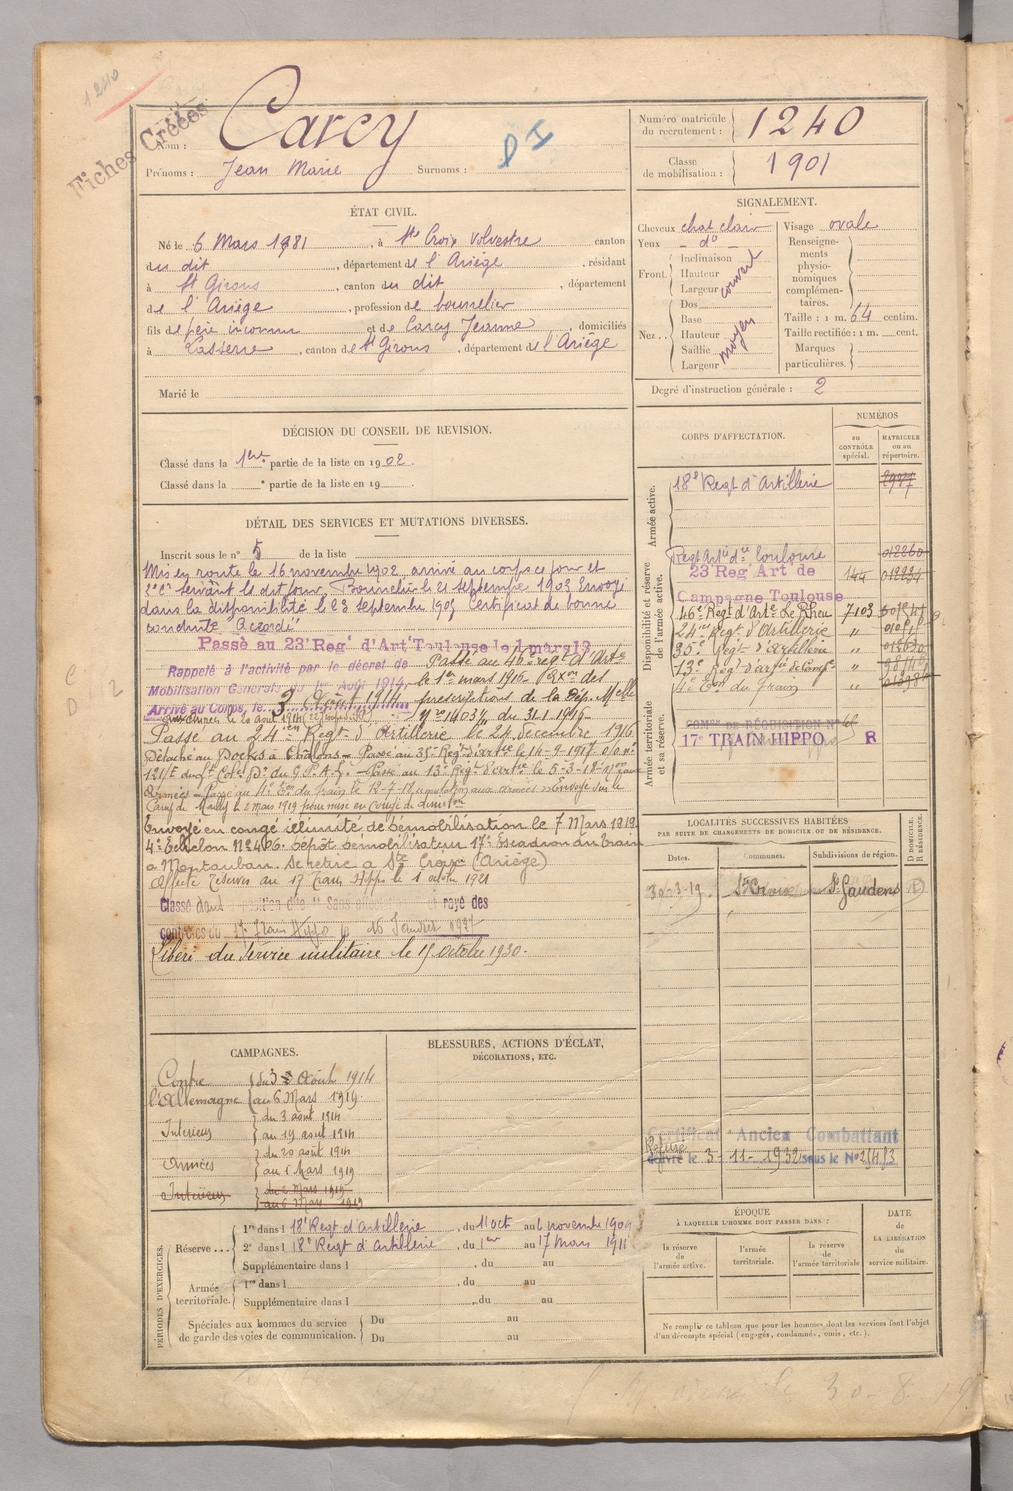 1240
Fiches Créées
Nom : Carcy
Prénoms : Jean Marie Surnoms :
Numéro matricule du recrutement : 1240
Classe de mobilisation : 1901
ÉTAT CIVIL.
Né le 6 Mars 1881, à Ste Croix Volvestre canton
du dit, département de l'Ariège, résidant
à St Girons, canton du dit, département
de l'Ariège, profession de bourrelier
fils de père inconnu et de Carcy Jeanne, domiciliés
à Lasserre, canton de St Girons, département de l'Ariège
Marié le
SIGNALEMENT.
Cheveux chat clair Visage ovale
Yeux - do -
Front. Inclinaison
Hauteur
Largeur couvert
Nez.. Dos
Base
Hauteur
Saillie
Largeur moyen
Renseignements physionomiques complémentaires.
Taille : 1 m. 64 centim.
Taille rectifiée : 1 m. cent.
Marques particulières.
Degré d'instruction générale : 2
DÉCISION DU CONSEIL DE REVISION.
Classé dans la 1ère partie de la liste en 1902.
Classé dans la e partie de la liste en 19
DÉTAIL DES SERVICES ET MUTATIONS DIVERSES.
Inscrit sous le n° 5 de la liste
Mis en route le 16 novembre 1902 arrivé au corps ce jour et
2e Cr servant le dit jour. Bourrelier le 21 septembre 1903 Envoyé
dans la disponibilité le 23 septembre 1905 Certificat de bonne
conduite "Accordé"
Passé au 23e Regt d'Artie Toulouse le 1 mars 13
Rappelé à l'activité par le décret de
Mobilisation Générale du 1er Août 1914,
Arrivé au Corps, le 3 Août 1914
Passé au 46e regt d'Arte
le 1er mars 1916
prescriptions de la Dép. Melle
No 1403/11 du 31-1-1916
Passé au 24ème Regt d'Artillerie le 24 décembre 1916
Détaché au Docks à Chalons - Passé au 35e Regt d'artie le 14-9-1917
Passé au 13e Regt d'artie le 5-3-18
Camp de Mailly le 2 mars 1919 pour mise en congé de démobon
Envoyé en congé illimité de démobilisation le 7 Mars 1919.
4e Echelon No 406. Dépôt démobilisateur 17e Escadron du train
à Montauban. Se retire à Ste Croix (Ariège)
Affecté Réserves au 17 Train Hippo le 1 octobre 1921
Classé dans position dite "Sans affectation" et rayé des
contrôles du 17e Train Hippo le 16 Janvier 1927
Libéré du Service militaire le 15 octobre 1930.
CORPS D'AFFECTATION.
NUMÉROS
au CONTRÔLE spécial.
MATRICULE ou au répertoire.
Armée active.
18e Regt d'Artillerie
Disponibilité et réserve de l'armée active.
Regt Artie de Toulouse
23 Reg Art de 144
Campagne Toulouse
46e Regt d'Arte Le Rheu 7103
24e Regt d'Artillerie "
35e Regt d'Artillerie "
13e Regt d'artie de Campe "
4e Eon du Train "
Armée territoriale et sa réserve.
COMon DE RÉQUISITION N°
17e TRAIN HIPPO R
LOCALITÉS SUCCESSIVES HABITÉES
PAR SUITE DE CHANGEMENTS DE DOMICILE OU DE RÉSIDENCE.
Dates. Communes. Subdivisions de région. D DOMICILE. R RÉSIDENCE.
30-3-19 Ste Croix St Gaudens D
Certificat Ancien Combattant
Refusé
délivré le 3-11-1932 sous le No 25483
CAMPAGNES.
Contre l'Allemagne du 3 Août 1914
au 6 Mars 1919
Intérieur du 3 août 1914
au 19 août 1914
Armées du 20 août 1914
au 6 Mars 1919
Intérieur du 6 Mars 1919
au 6 Mars 1919
BLESSURES, ACTIONS D'ÉCLAT,
DÉCORATIONS, ETC.
PÉRIODES D'EXERCICES.
Réserve... 1re dans l 18e Regt d'Artillerie, du 11 oct au 6 novembre 1908
2e dans l 18e Regt d'Artillerie, du 1er au 17 Mars 1911
Supplémentaire dans l , du au
Armée territoriale. 1re dans l , du au
Supplémentaire dans l , du au
Spéciales aux hommes du service de garde des voies de communication. Du au
Du au
ÉPOQUE
À LAQUELLE L'HOMME DOIT PASSER DANS :
la réserve de l'armée active.
l'armée territoriale.
la réserve de l'armée territoriale
DATE de LA LIBÉRATION du service militaire.
Ne remplir ce tableau que pour les hommes dont les services font l'objet
d'un décompte spécial (engagés, condamnés, omis, etc.).